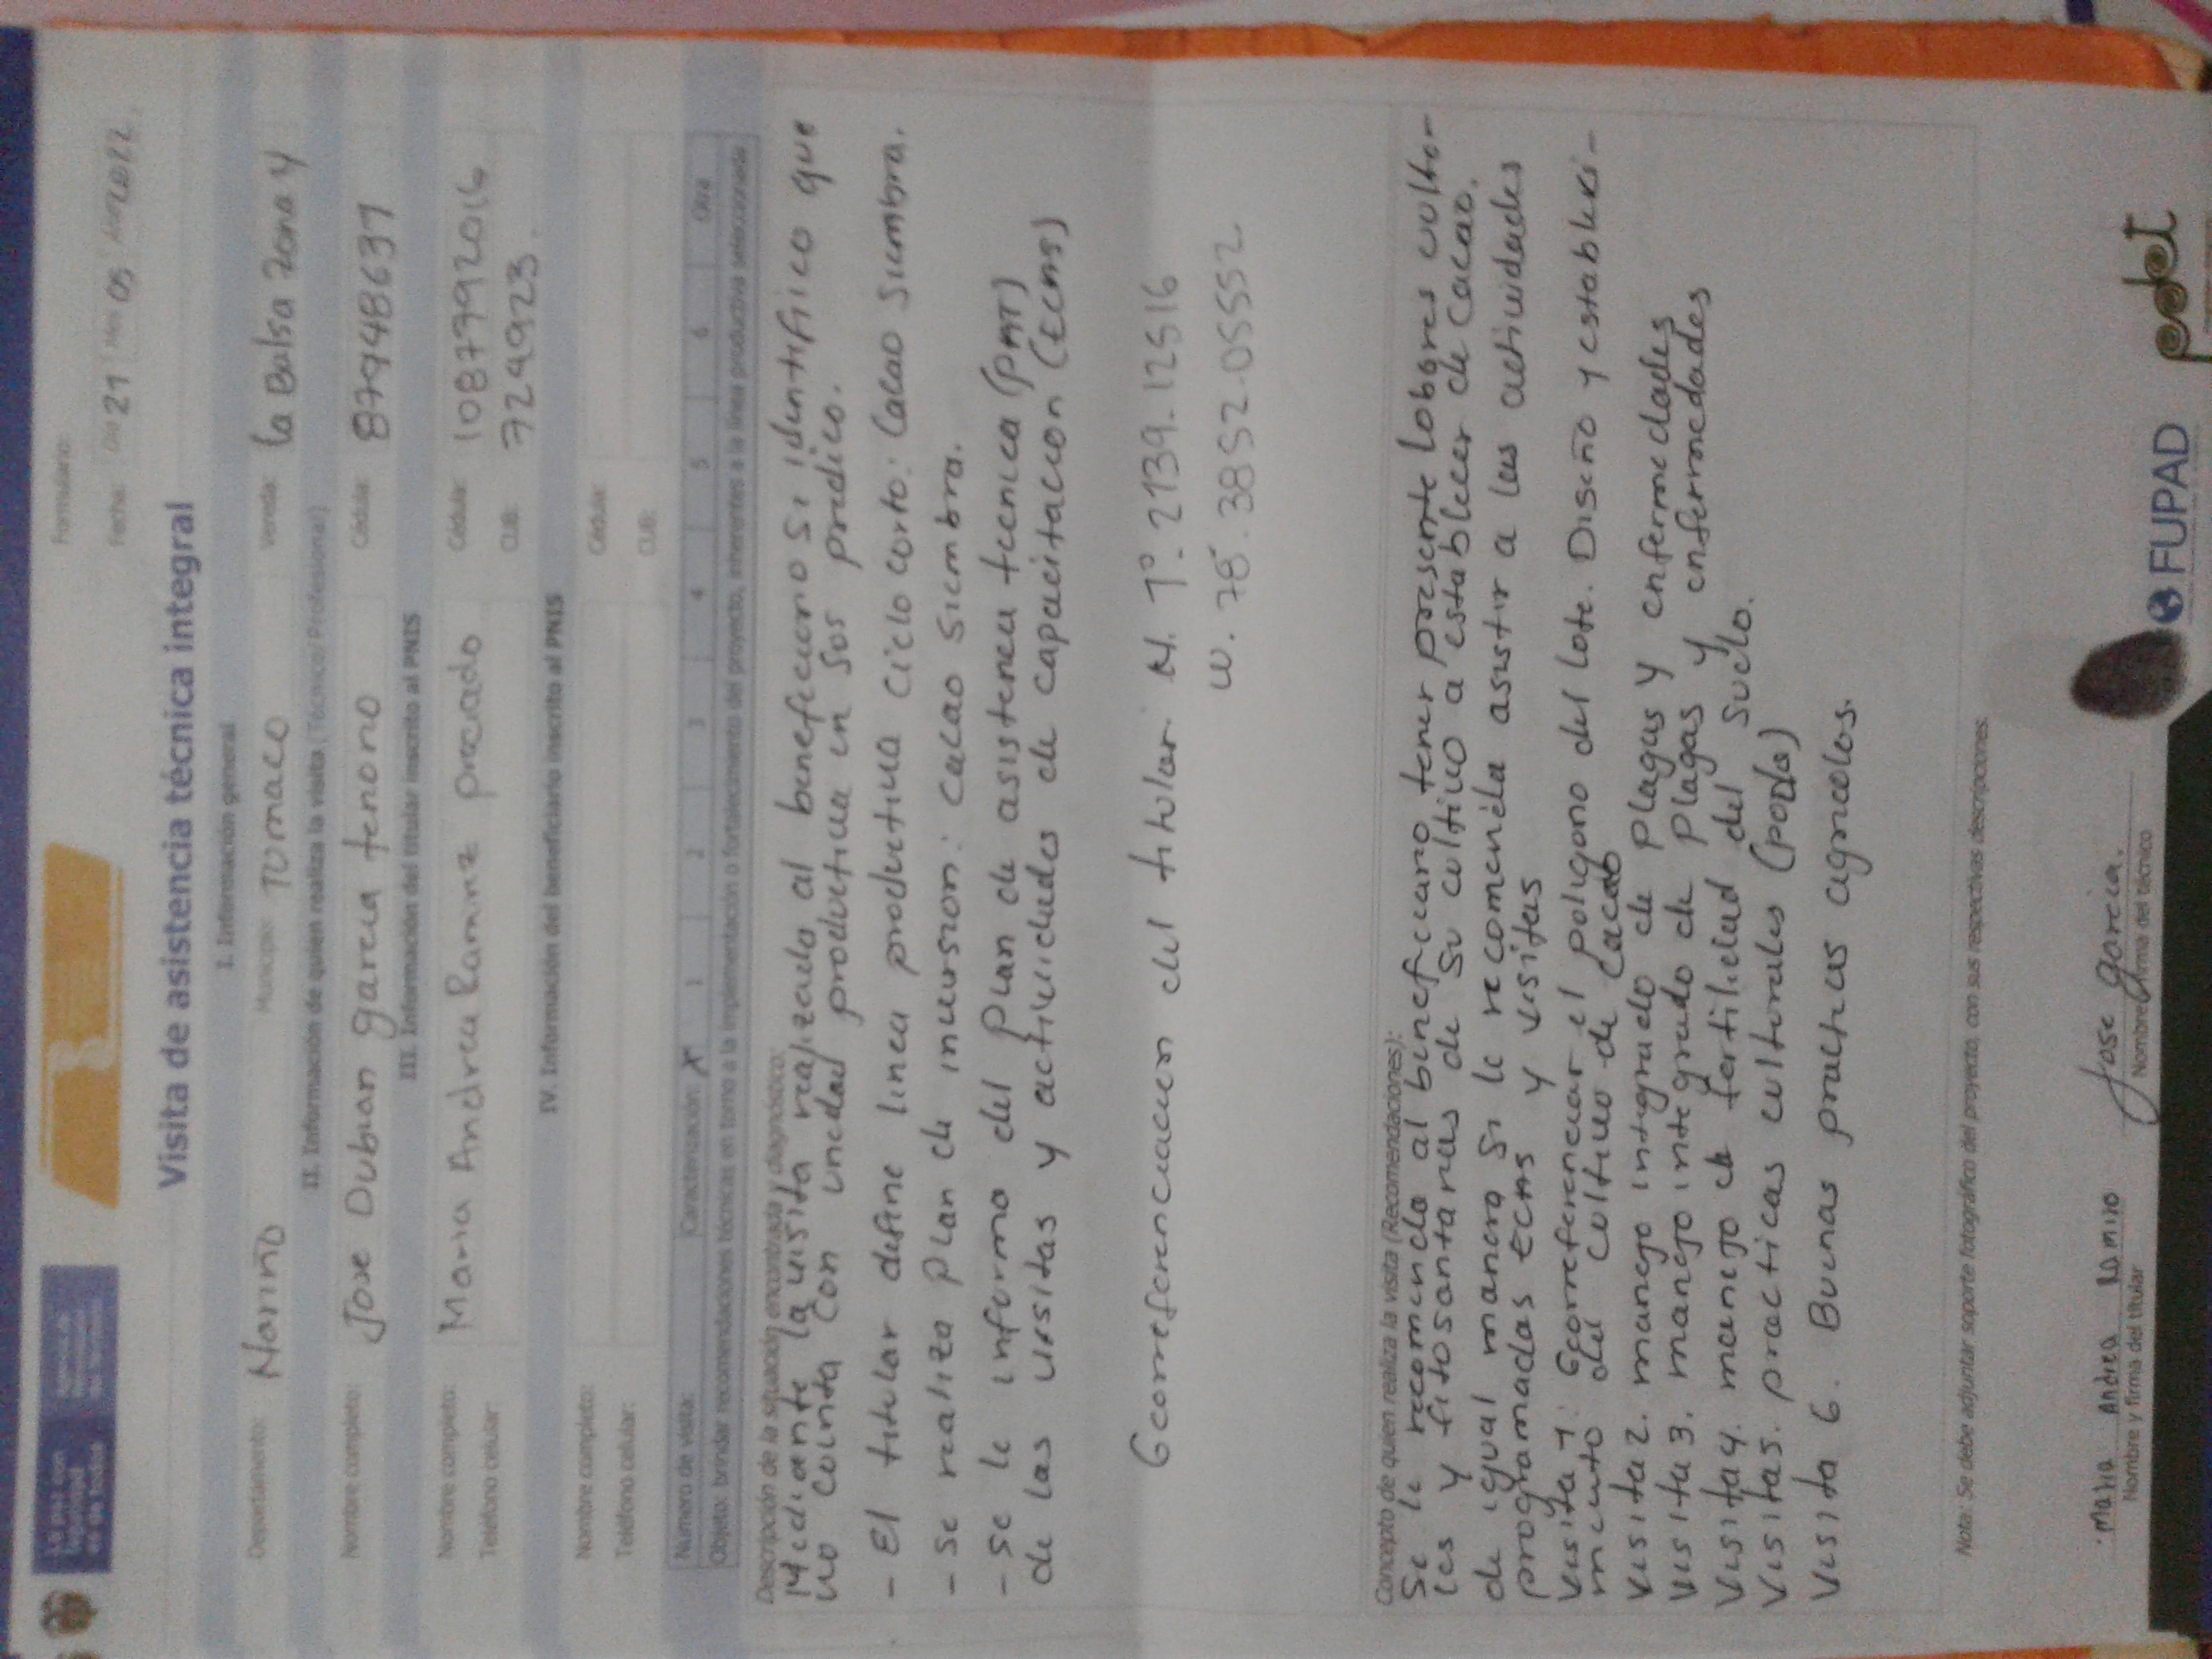 Formulario:
Fecha: Día 21 Mes 05 Año 2022.
Visita de asistencia técnica integral
I. Información general
Departamento: Nariño Municipio: Tumaco Vereda: la Balsa zona 4
II. Información de quien realiza la visita (Técnico/Profesional)
Nombre completo: Jose Dubian garcia tenorio Cédula: 87948637
III. Información del titular inscrito al PNIS
Nombre completo: Maria Andrea Ramirez preciado Cédula: 1087992016
Teléfono celular: CUB: 724923.
IV. Información del beneficiario inscrito al PNIS
Nombre completo: Cédula:
Teléfono celular: CUB:
Número de visita: Caracterización X 1 2 3 4 5 6 Otra
Objeto: brindar recomendaciones técnicas en torno a la implementación o fortalecimiento del proyecto, inherentes a la línea productiva seleccionada
Descripción de la situación encontrada y diagnóstico:
Mediante la visita realizada al beneficiario si identifico que
no cuinta con unidad productiva en sos predios.
- El titular define linea productiva ciclo corto: Cacao siembra.
- se realiza plan de inversion: cacao siembra.
- se le informa del plan de asistencia tecnica (PAT)
de las visitas y actividades de capacitacion (ECAS)
Georreferenciacion del titular N. 1°. 2139.12516
W. 78°. 3852.05552
Concepto de quien realiza la visita (Recomendaciones):
Se le recomienda al beneficiario tener presente lobores cultora-
les y fitosanitarias de su cultivo a establecer de cacao.
de igual manera si le recomienda asistir a las actividades
programadas ECAS y visitas
visita 1: Georreferenciar el poligono del lote. Diseño y estableci-
miento del cultivo de cacao
visita 2. manejo integrado de plagas y enfermedades
visita 3. manejo integrado de plagas y enfermedades
visita 4. manejo de fertilidad del suelo.
visita 5. practicas culturales (poda)
visita 6. Buenas practicas agricolas.
Nota: Se debe adjuntar soporte fotográfico del proyecto, con sus respectivas descripciones.
Maria Andrea Ramiro Jose garcia.
Nombre y firma del titular Nombre y firma del técnico
FUPAD pdet